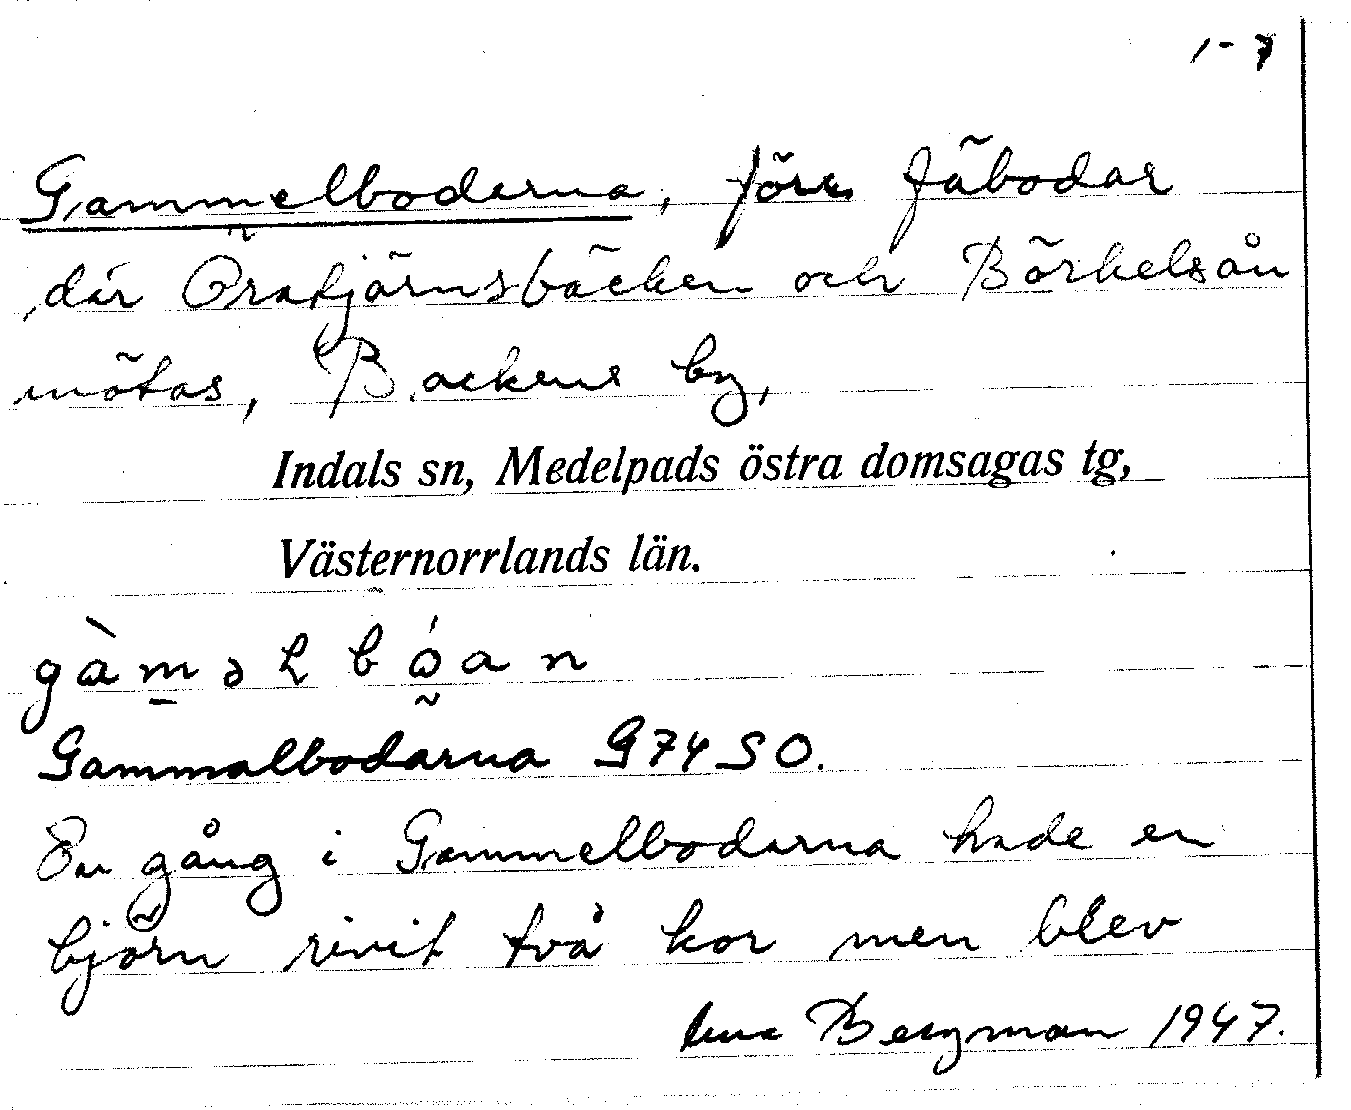 1-7
Gammelboderna, förr fäbodar
där Öratjärnsbäcken och Börkelsån
mötas, Backens by,
Indals sn, Medelpads östra domsagas tg,
Västernorrlands län.
gàm̲əlbó̰an
Gammalbodarna G74SO.
En gång i Gammelbodarna hade en
björn rivit två kor men blev
Bergman 1947.